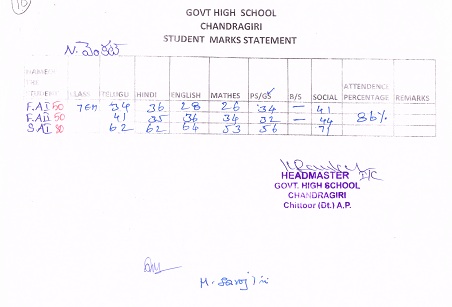 10
GOVT HIGH SCHOOL
CHANDRAGIRI
STUDENT MARKS STATEMENT
N.
CLASS TELUGU HINDI ENGLISH MATHES PS/GS B/S SOCIAL ATTENDENCE PERCENTAGE REMARKS
F.A I 50 7th 34 36 28 26 34 — 41 86%
F.A II 50 41 35 36 34 32 — 44
S.A I 80 62 62 64 53 56 71
HEADMASTER I/C
GOVT. HIGH SCHOOL
CHANDRAGIRI
Chittoor (Dt.) A.P.
M. Saroj